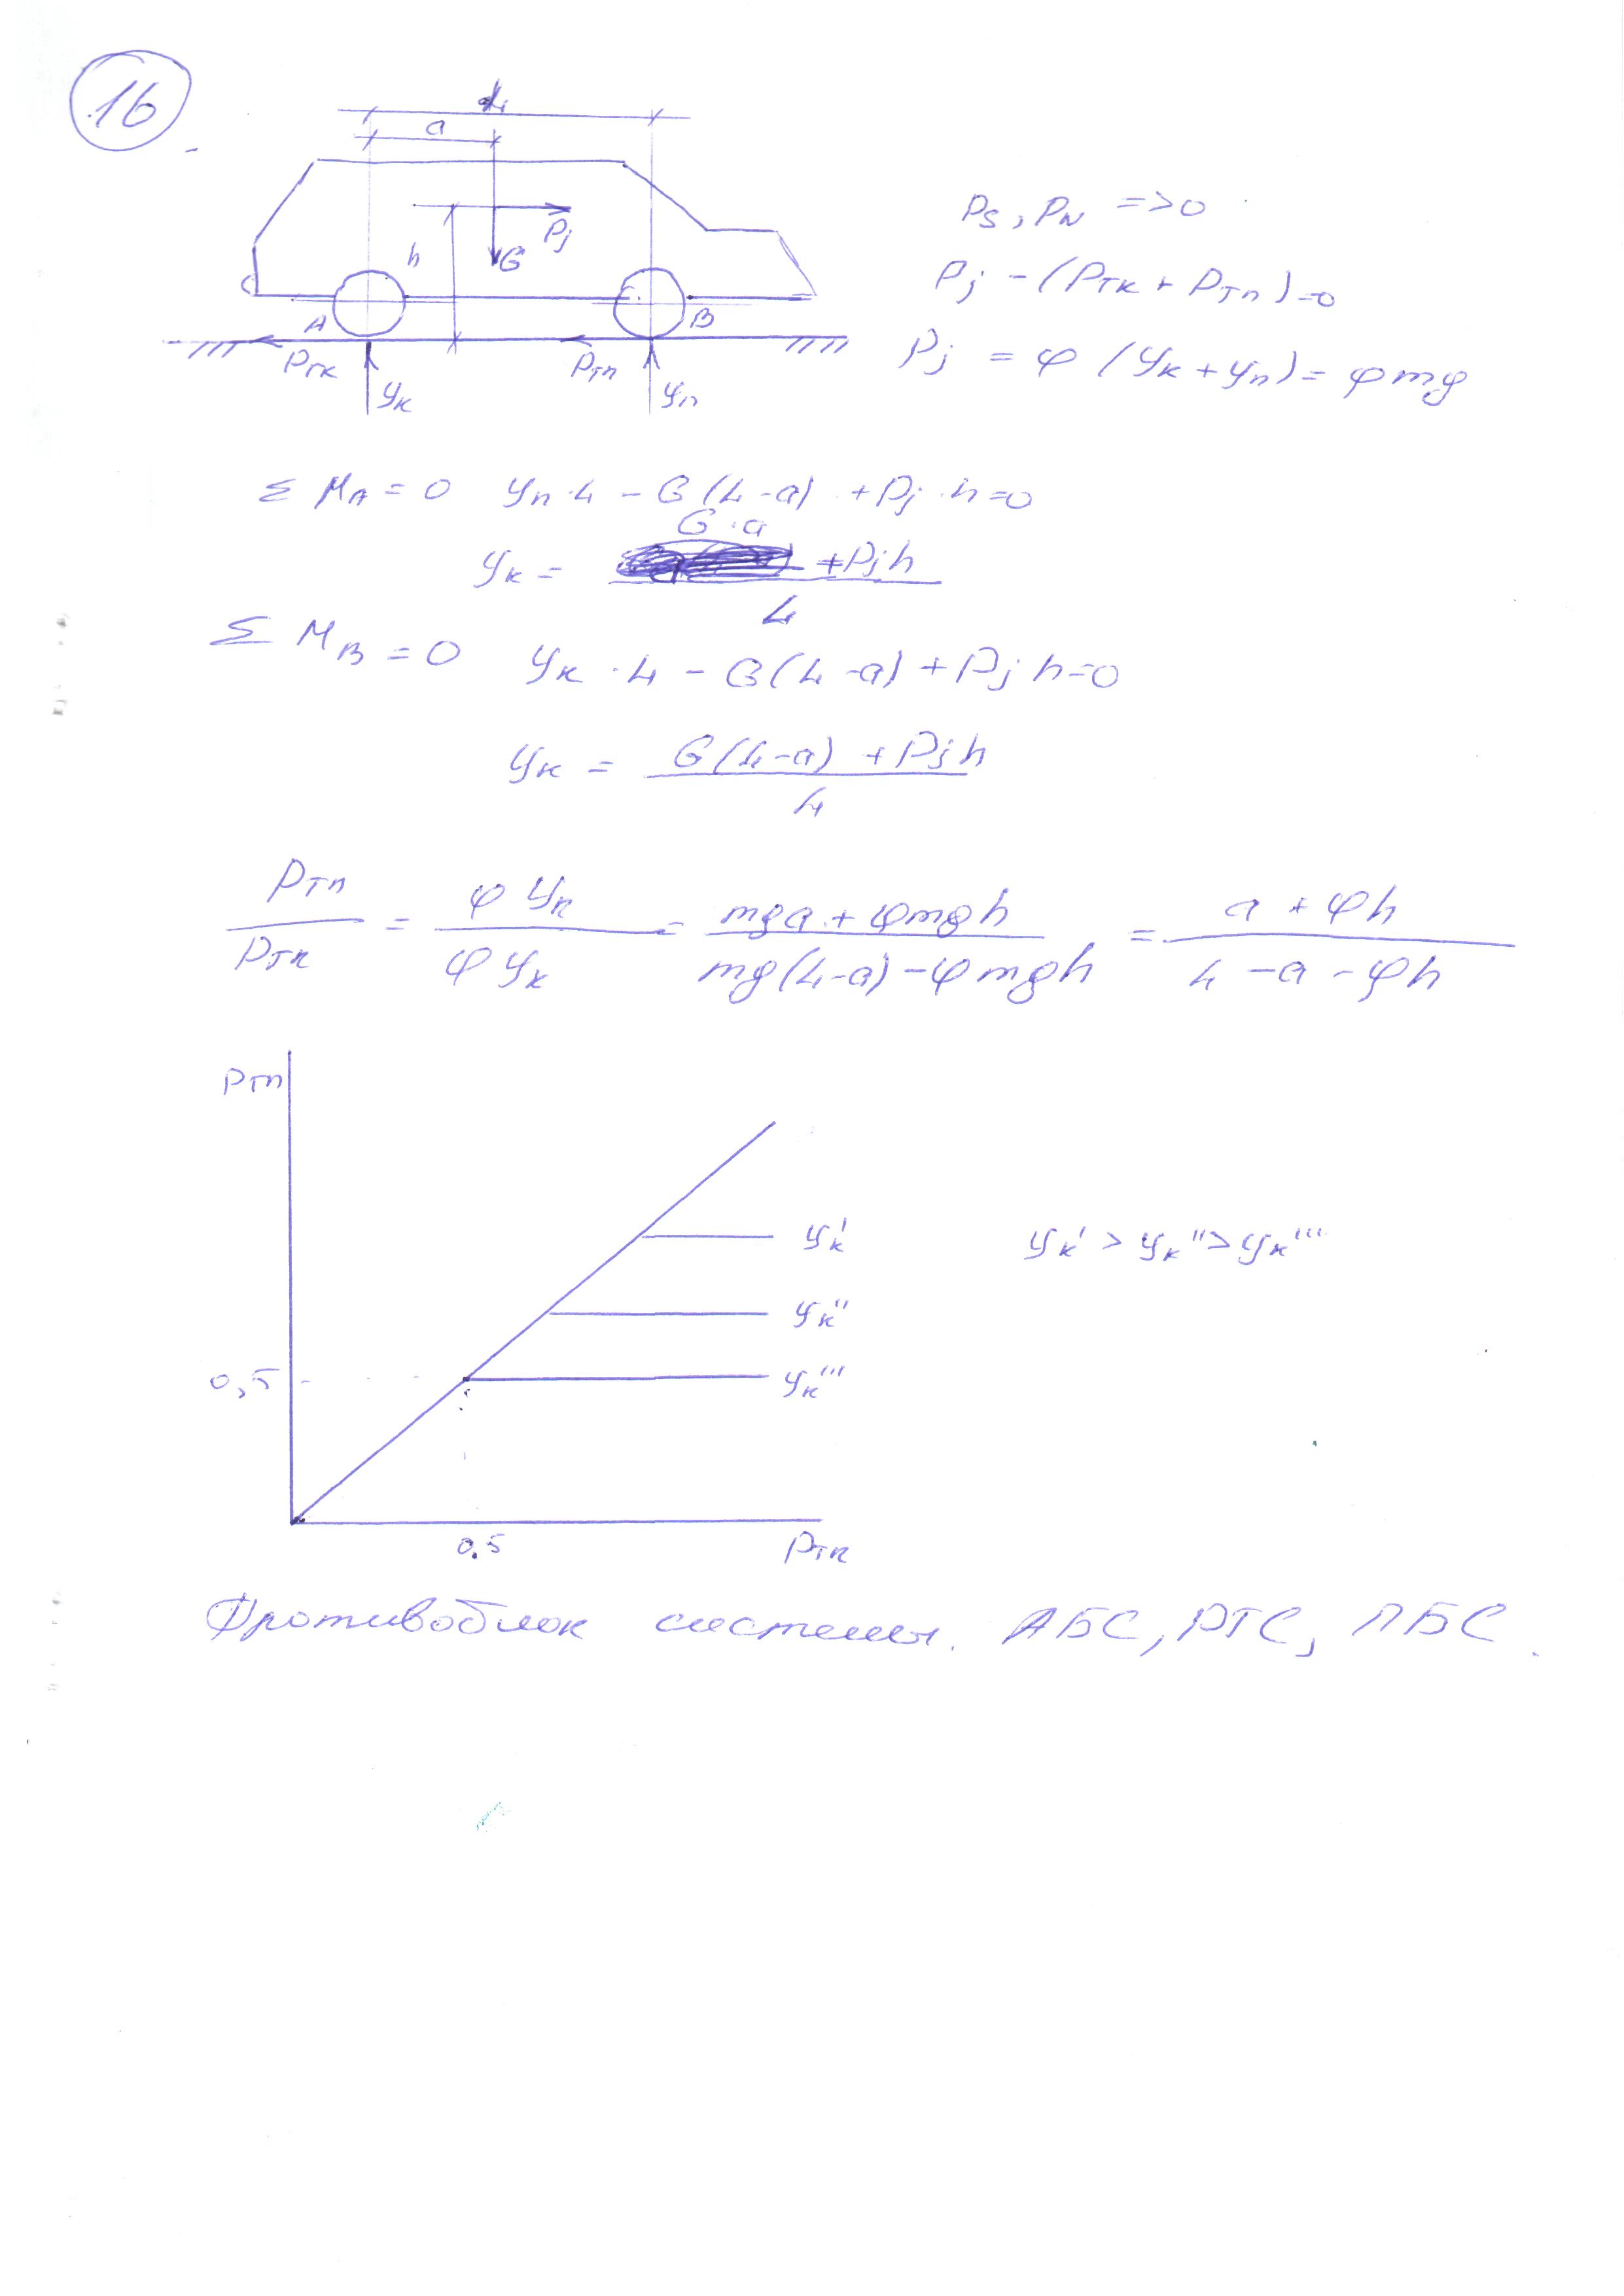 16
L
a
h
Pj
G
A
B
Pтк
Pтп
Yк
Yп
Ps, Pw => 0
Pj - (Pтк + Pтп) = 0
Pj = φ (Yк + Yп) = φmg
Σ MA = 0 Yп·L - G(L-a) + Pj·h = 0
Yк = (G·a + Pjh) / L
Σ MB = 0 Yк·L - G(L-a) + Pj h = 0
Yк = (G(L-a) + Pjh) / L
Pтп / Pтк = φ Yп / φ Yк = (mga + φmgh) / (mg(L-a) - φmgh) = (a + φh) / (L - a - φh)
Pтп
Yк'
Yк' > Yк'' > Yк'''
Yк''
0,5
Yк'''
0.5
Pтк
Противоблок системы. АБС, РТС, ПБС.